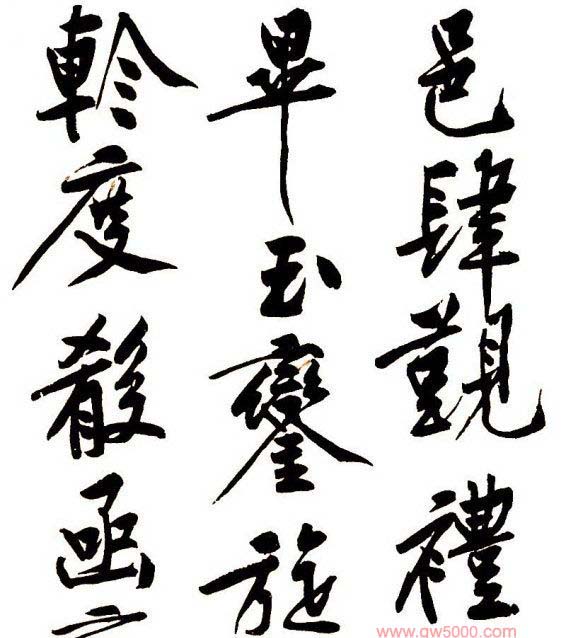 邑肆觀禮
畢玉鑾旋
軫度殽函
www.qw5000.com